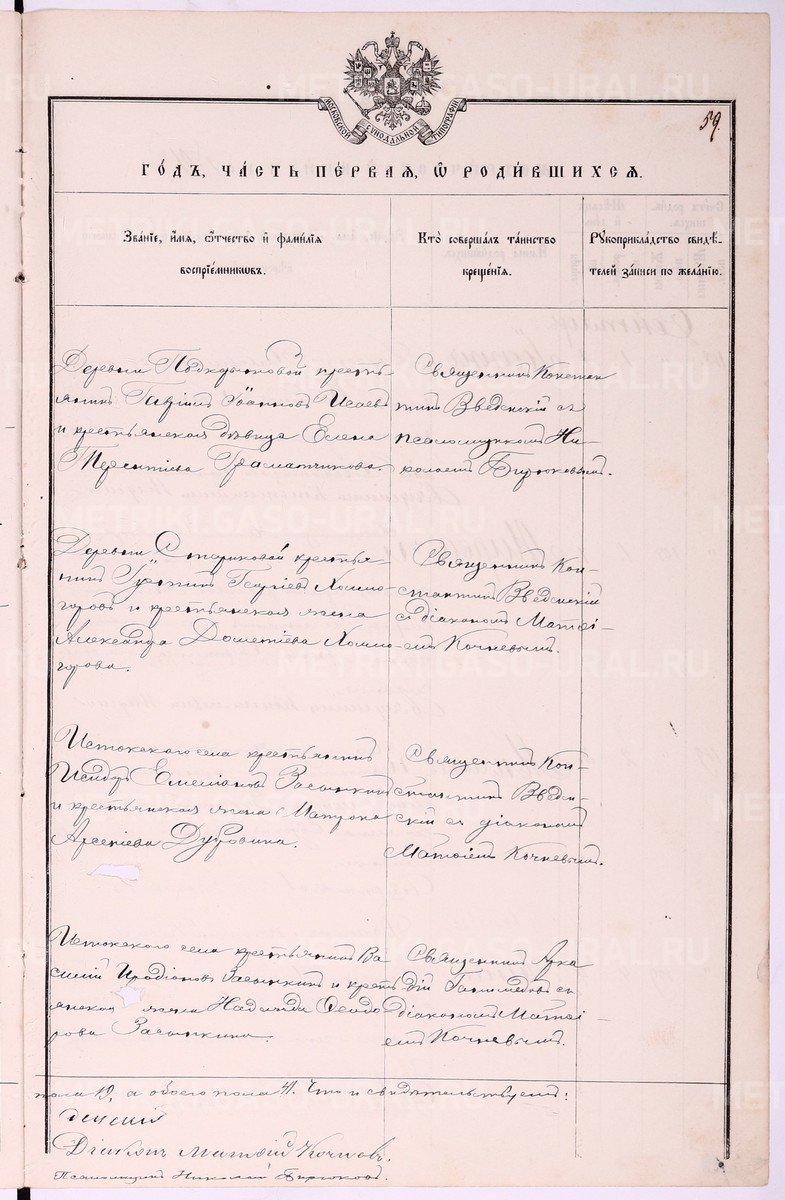 МОСКОВСКОЙ СѴНОДАЛЬНОЙ ТИПОГРАФІИ
59.
ГО́ДЪ, ЧА́СТЬ ПЕ́РВАЯ, Ѽ РОДИ́ВШИХСЯ.
Зва́ніе, и҆́мя, ѻ҆́тчество и҆ фами́лія
воспріе́мниковъ.
Кто̀ соверша́лъ та́инство
креще́нія.
Рꙋкоприкла́дство свидѣ́-
телей за́писи по жела́нію.
Деревни Подкорытовой кресть-
янинъ Гавріилъ Іоанновъ Исаевъ
и крестьянская дѣвица Елена
Терентіева Граматчикова.
Священникъ Констан
тинъ Введенскій съ
псаломщикомъ Ни-
колаемъ Бирюковымъ.
Деревни Стариковой крестья-
нинъ Георгіевъ Холмо
горовъ и крестьянская жена
Александра Дометіева Холмо
горова.
Священникъ Кон-
стантинъ Введенскій
съ діакономъ Матѳі-
емъ Кочневымъ.
Истокскаго села крестьянинъ
Исидоръ Емеліановъ Засыпкинъ
и крестьянская жена Матрона
Арсеніева Дубровина.
Священникъ Кон-
стантинъ Введен-
скій съ діакономъ
Матѳіемъ Кочневымъ.
Истокскаго села крестьянинъ Ва
силій Иродіоновъ Засыпкинъ и кресть
янская жена Надежда Ѳеодо
рова Засыпкина.
Священникъ Арка
дій Ганимедовъ съ
діакономъ Матѳі-
емъ Кочневымъ.
пола 19, а обоего пола 41. Что и свидѣтельствуемъ:
денскій
Діаконъ Матѳій Кочневъ.
Псаломщикъ Николай Бирюковъ.
METRIKI.GASO-URAL.RU